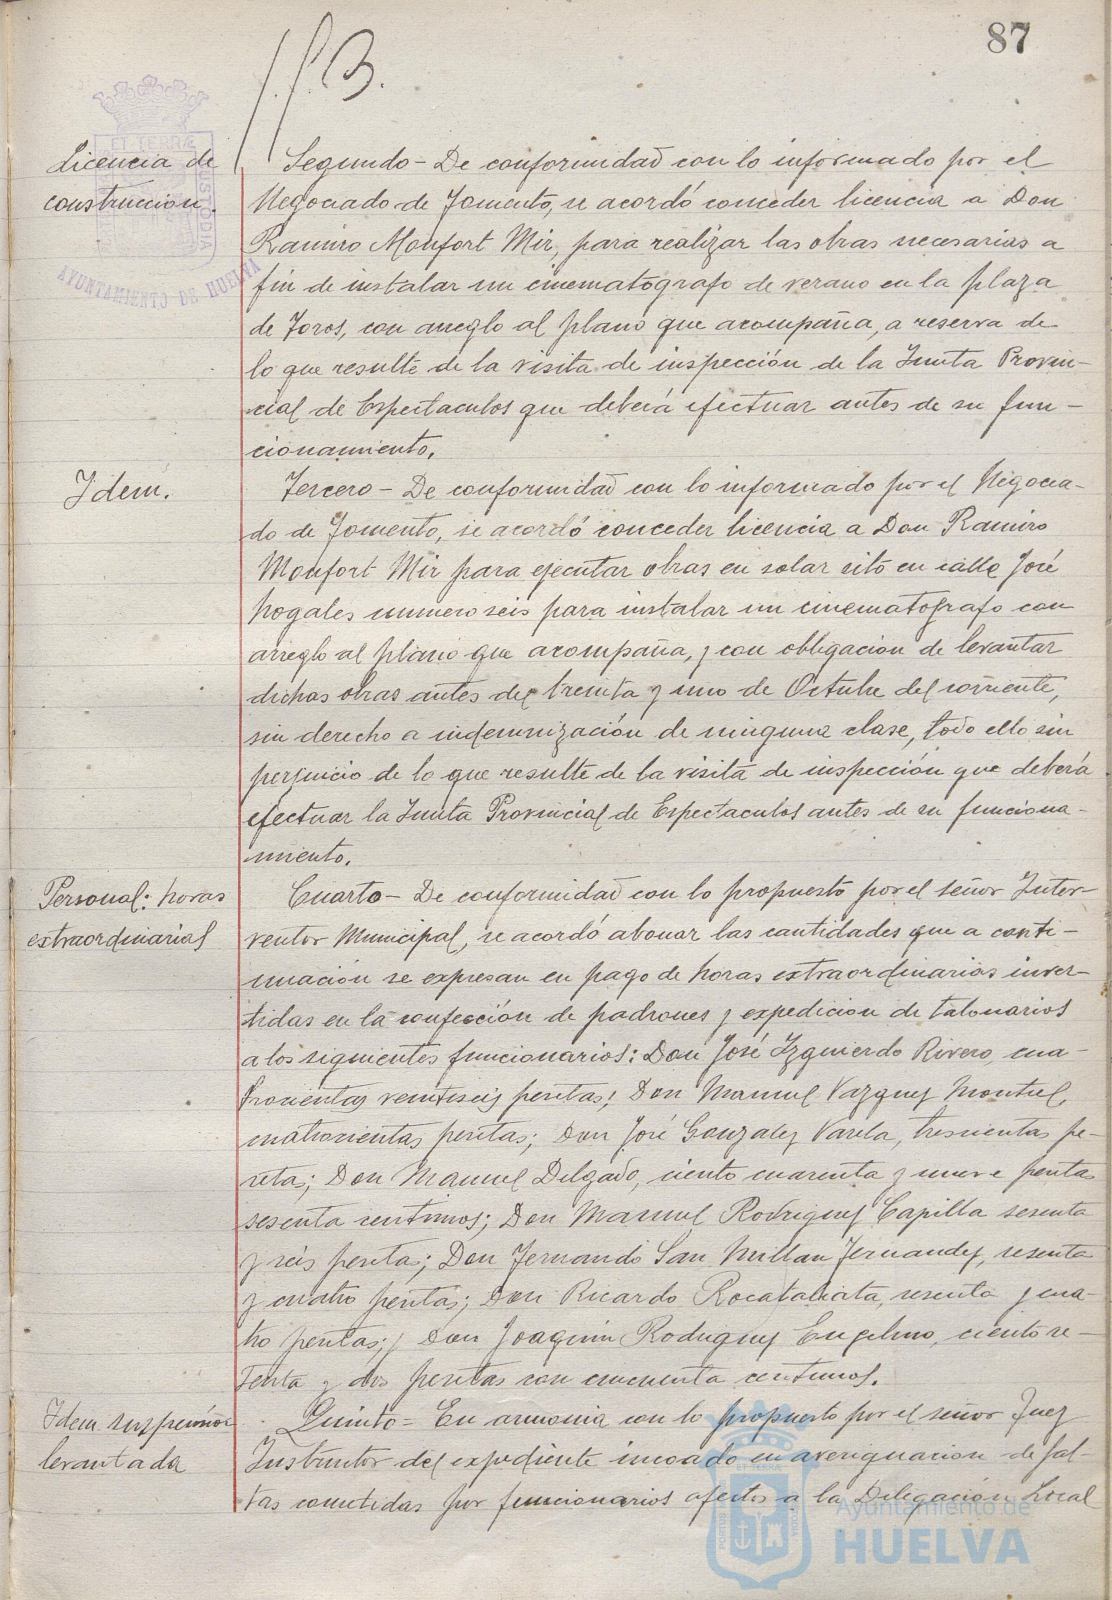 87
Licencia de
construccion.
Segundo - De conformidad con lo informado por el
Negociado de Fomento, se acordó conceder licencia a Don
Ramiro Monfort Mir, para realizar las obras necesarias a
fin de instalar un cinematógrafo de verano en la plaza
de Toros, con arreglo al plano que acompaña, a reserva de
lo que resulte de la visita de inspección de la Junta Provin-
cial de Espectaculos que deberá efectuar antes de su fun-
cionamiento.
Idem.
Tercero - De conformidad con lo informado por el Negocia-
do de Fomento, se acordó conceder licencia a Don Ramiro
Monfort Mir para ejecutar obras en solar sito en calle José
Nogales numero seis para instalar un cinematografo con
arreglo al plano que acompaña, y con obligacion de levantar
dichas obras antes del treinta y uno de Octubre del corriente,
sin derecho a indemnización de ninguna clase, todo ello sin
perjuicio de lo que resulte de la visita de inspección que deberá
efectuar la Junta Provincial de Espectaculos antes de su funciona-
miento.
Personal: horas
extraordinarias
Cuarto - De conformidad con lo propuesto por el señor Inter-
ventor Municipal, se acordó abonar las cantidades que a conti-
nuación se expresan en pago de horas extraordinarias inver-
tidas en la confección de padrones y expedicion de talonarios
a los siguientes funcionarios: Don José Izquierdo Rivero, cua-
trocientas veintiseis pesetas; Don Manuel Vazquez Montiel,
cuatrocientas pesetas; Don José Gonzalez Varela, trescientas pe-
setas; Don Manuel Delgado, ciento cuarenta y nueve pesetas
sesenta centimos; Don Manuel Rodriguez Capilla sesenta
y seis pesetas; Don Fernando San Millan Fernandez, sesenta
y cuatro pesetas; Don Ricardo sesenta y cua-
tro pesetas; y Don Joaquin Rodriguez ciento se-
tenta y dos pesetas con cincuenta centimos.
Idem suspension
levantada
Quinto = En armonia con lo propuesto por el señor Juez
Instructor del expediente incoado en averiguacion de fal-
tas cometidas por funcionarios afectos a la Delegación Local
ET TERRÆ
CUSTODIA
AYUNTAMIENTO DE HUELVA
Ayuntamiento de
HUELVA